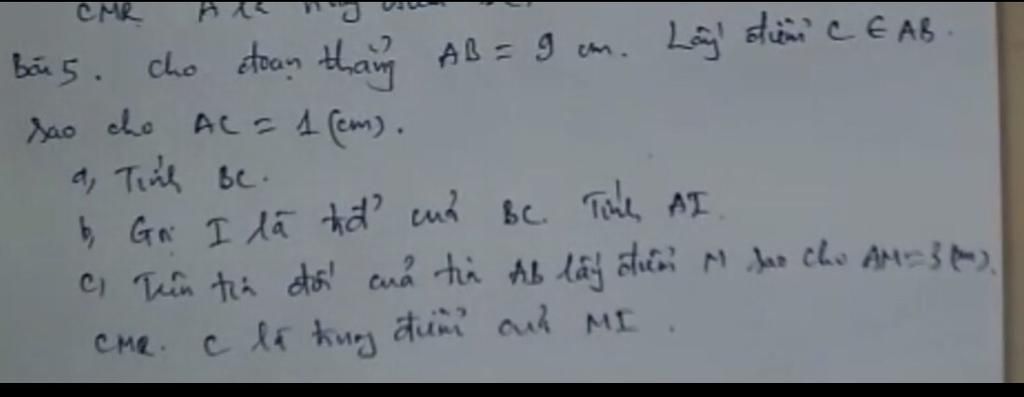 CMR A là trung
Bài 5. Cho đoạn thẳng AB = 9 cm. Lấy điểm C ∈ AB.
sao cho AC = 1 (cm).
a, Tính BC.
b, Gọi I là tđ' của BC. Tính AI.
c, Trên tia đối của tia AB lấy điểm M sao cho AM = 3 (cm).
CMR. C là trung điểm của MI.